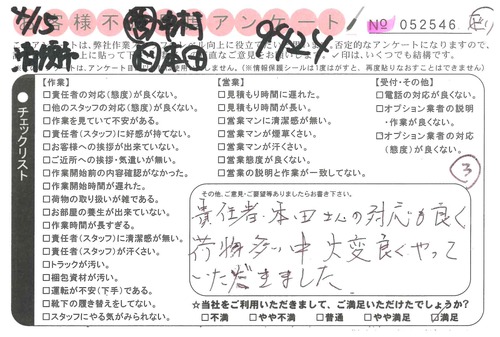 4/15
中村
本田
9424
アンケート
No 052546
否定的なアンケートになりますので、
(※情報保護シールは1度はがすと、再度貼りなおすことはできません)
チェックリスト
【作業】
□責任者の対応(態度)が良くない。
□他のスタッフの対応(態度)が良くない。
□作業を見ていて不安がある。
□責任者(スタッフ)に好感が持てない。
□お客様への挨拶が出来ていない。
□ご近所への挨拶・気遣いが無い。
□作業開始前の内容確認がなかった。
□作業開始時間が遅れた。
□荷物の取り扱いが雑である。
□お部屋の養生が出来ていない。
□作業時間が長すぎる。
□責任者(スタッフ)に清潔感が無い。
□責任者(スタッフ)が汗くさい。
□トラックが汚い。
□梱包資材が汚い。
□運転が不安(下手)である。
□靴下の履き替えをしてない。
□スタッフにやる気がみられない。
【営業】
□見積もり時間に遅れた。
□見積もり時間が長い。
□営業マンに清潔感が無い。
□営業マンが煙草くさい。
□営業マンが汗くさい。
□営業態度が良くない。
□営業の説明と作業が一致してない。
【受付・その他】
□電話の対応が良くない。
□オプション業者の説明
・作業が良くない。
□オプション業者の対応
(態度)が良くない。
③
その他、ご意見・ご要望等ありましたらお書き下さい。
責任者・本田さんの対応も良く
荷物多い中 大変良くやって
いただきました
☆当社をご利用いただきまして、ご満足いただけたでしょうか?
□不満 □やや不満 □普通 □やや満足 ☑満足